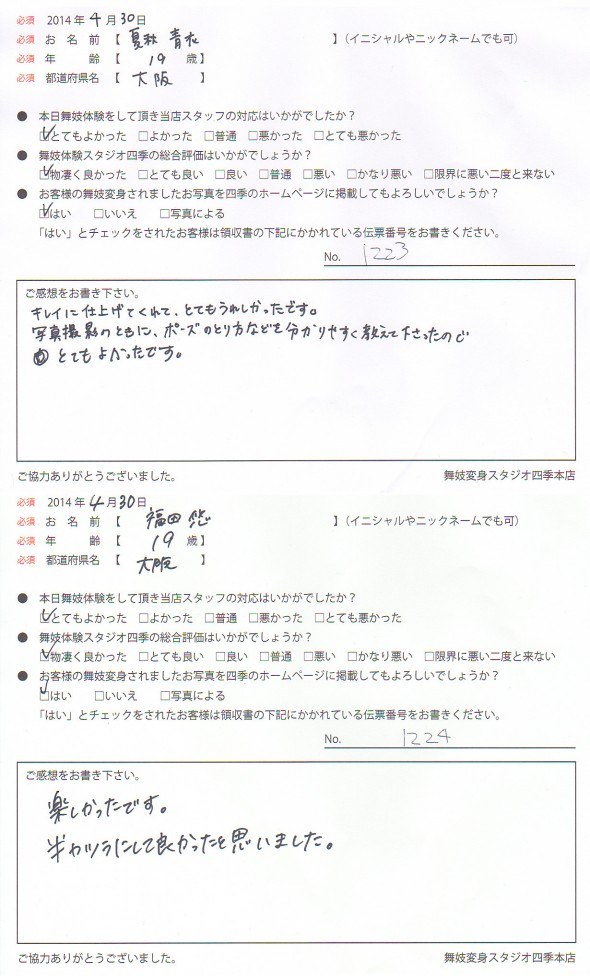 必須 2014年4月30日
必須 お名前【 夏秋 青衣 】(イニシャルやニックネームでも可)
必須 年齢【 19 歳】
必須 都道府県名【 大阪 】
● 本日舞妓体験をして頂き当店スタッフの対応はいかがでしたか?
☑とてもよかった □よかった □普通 □悪かった □とても悪かった
● 舞妓体験スタジオ四季の総合評価はいかがでしょうか?
☑物凄く良かった □とても良い □良い □普通 □悪い □かなり悪い □限界に悪い二度と来ない
● お客様の舞妓変身されましたお写真を四季のホームページに掲載してもよろしいでしょうか?
☑はい □いいえ □写真による
「はい」とチェックをされたお客様は領収書の下記にかかれている伝票番号をお書きください。
No. 1223
ご感想をお書き下さい。
キレイに仕上げてくれて、とてもうれしかったです。
写真撮影のともに、ポーズのとり方などを分かりやすく教えて下さったので
とてもよかったです。
ご協力ありがとうございました。 舞妓変身スタジオ四季本店
必須 2014年4月30日
必須 お名前【 福田 悠 】(イニシャルやニックネームでも可)
必須 年齢【 19 歳】
必須 都道府県名【 大阪 】
● 本日舞妓体験をして頂き当店スタッフの対応はいかがでしたか?
☑とてもよかった □よかった □普通 □悪かった □とても悪かった
● 舞妓体験スタジオ四季の総合評価はいかがでしょうか?
☑物凄く良かった □とても良い □良い □普通 □悪い □かなり悪い □限界に悪い二度と来ない
● お客様の舞妓変身されましたお写真を四季のホームページに掲載してもよろしいでしょうか?
☑はい □いいえ □写真による
「はい」とチェックをされたお客様は領収書の下記にかかれている伝票番号をお書きください。
No. 1224
ご感想をお書き下さい。
楽しかったです。
半カツラにして良かったと思いました。
ご協力ありがとうございました。 舞妓変身スタジオ四季本店